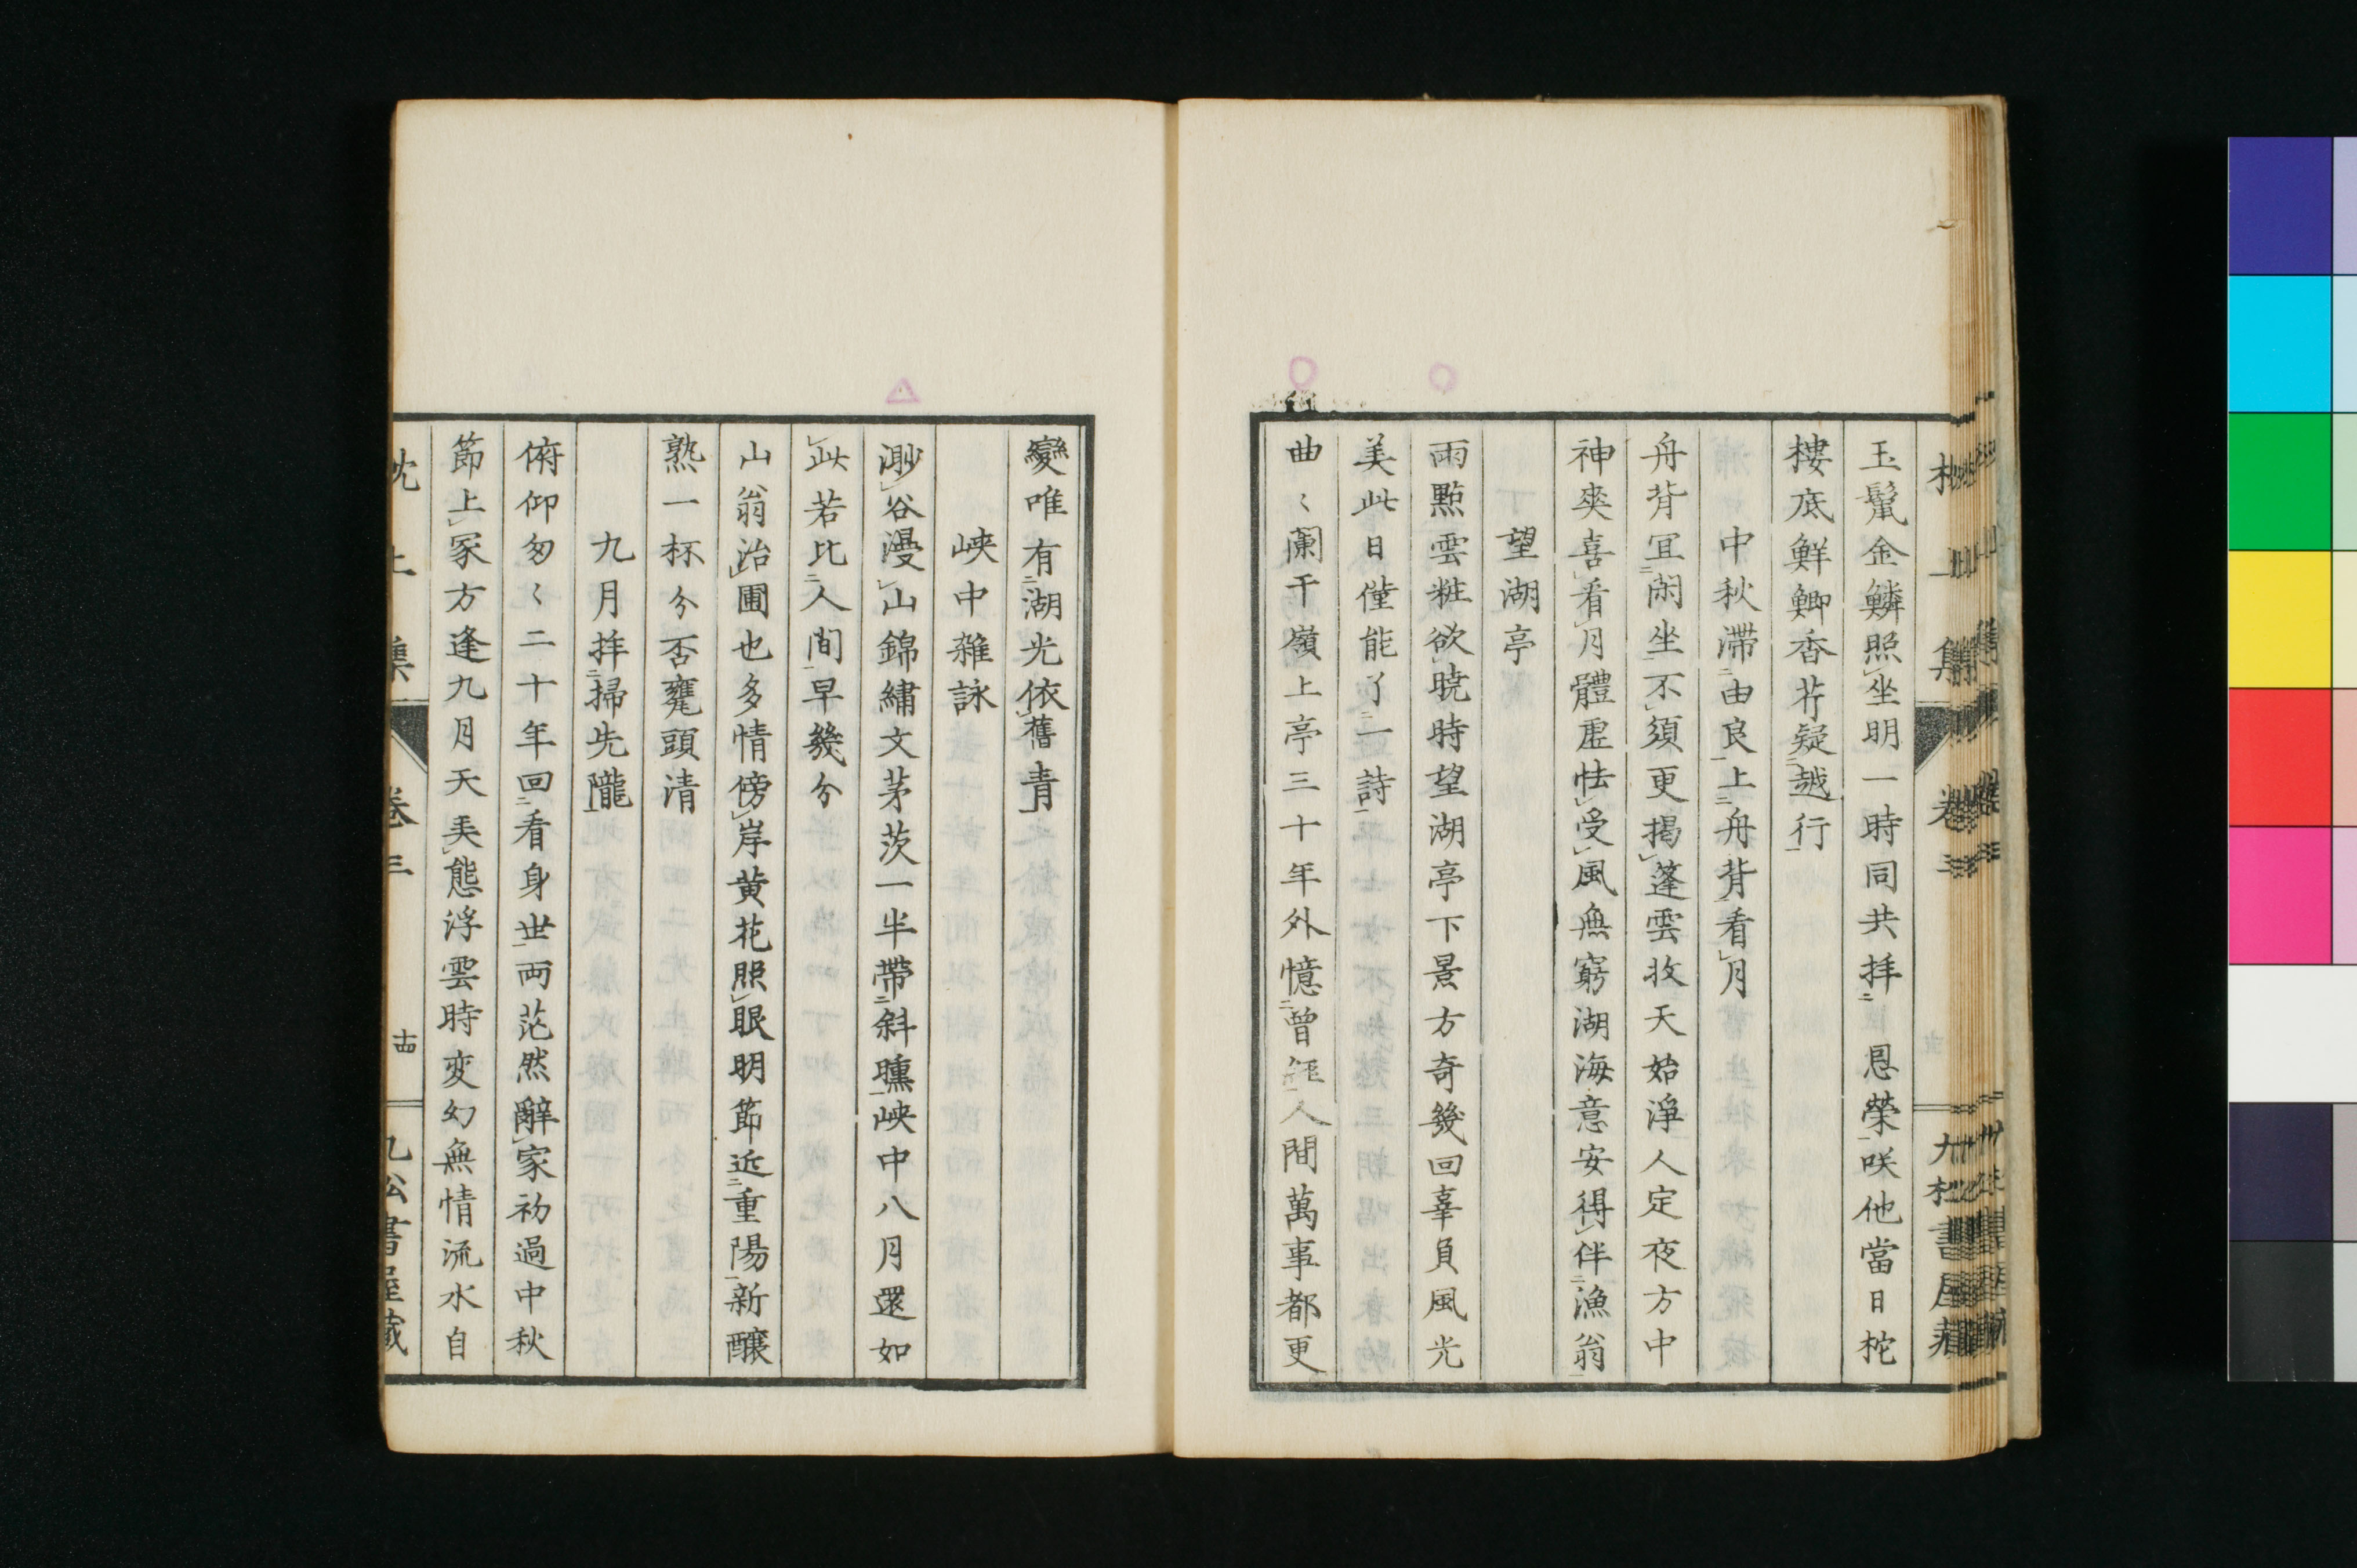 玉鬣金鱗照坐明一時同共拝恩榮咲他當日柁
樓底鮮鯽香芹疑越行
中秋滞由良上舟背看月
舟背宜閑坐不須更掲篷雲收天始淨人定夜方中
神爽喜看月體虛怯受風無窮湖海意安得伴漁翁
望湖亭
雨點雲粧欲曉時望湖亭下景方奇幾回辜負風光
美此日僅能了一詩
曲〻蘭干嶺上亭三十年外憶曾経人間萬事都更
變唯有湖光依舊青
峽中雜詠
渺谷漫山錦繡文茅茨一半帶斜曛峽中八月還如
此若比人間早幾分
山翁治圃也多情傍岸黄花照眼明節近重陽新釀
熟一杯分否甕頭清
九月拝掃先隴
俯仰匆〻二十年回看身世両茫然辭家初過中秋
節上冢方逢九月天美態浮雲時変幻無情流水自
枕上集 卷三 十四 九公書屋藏